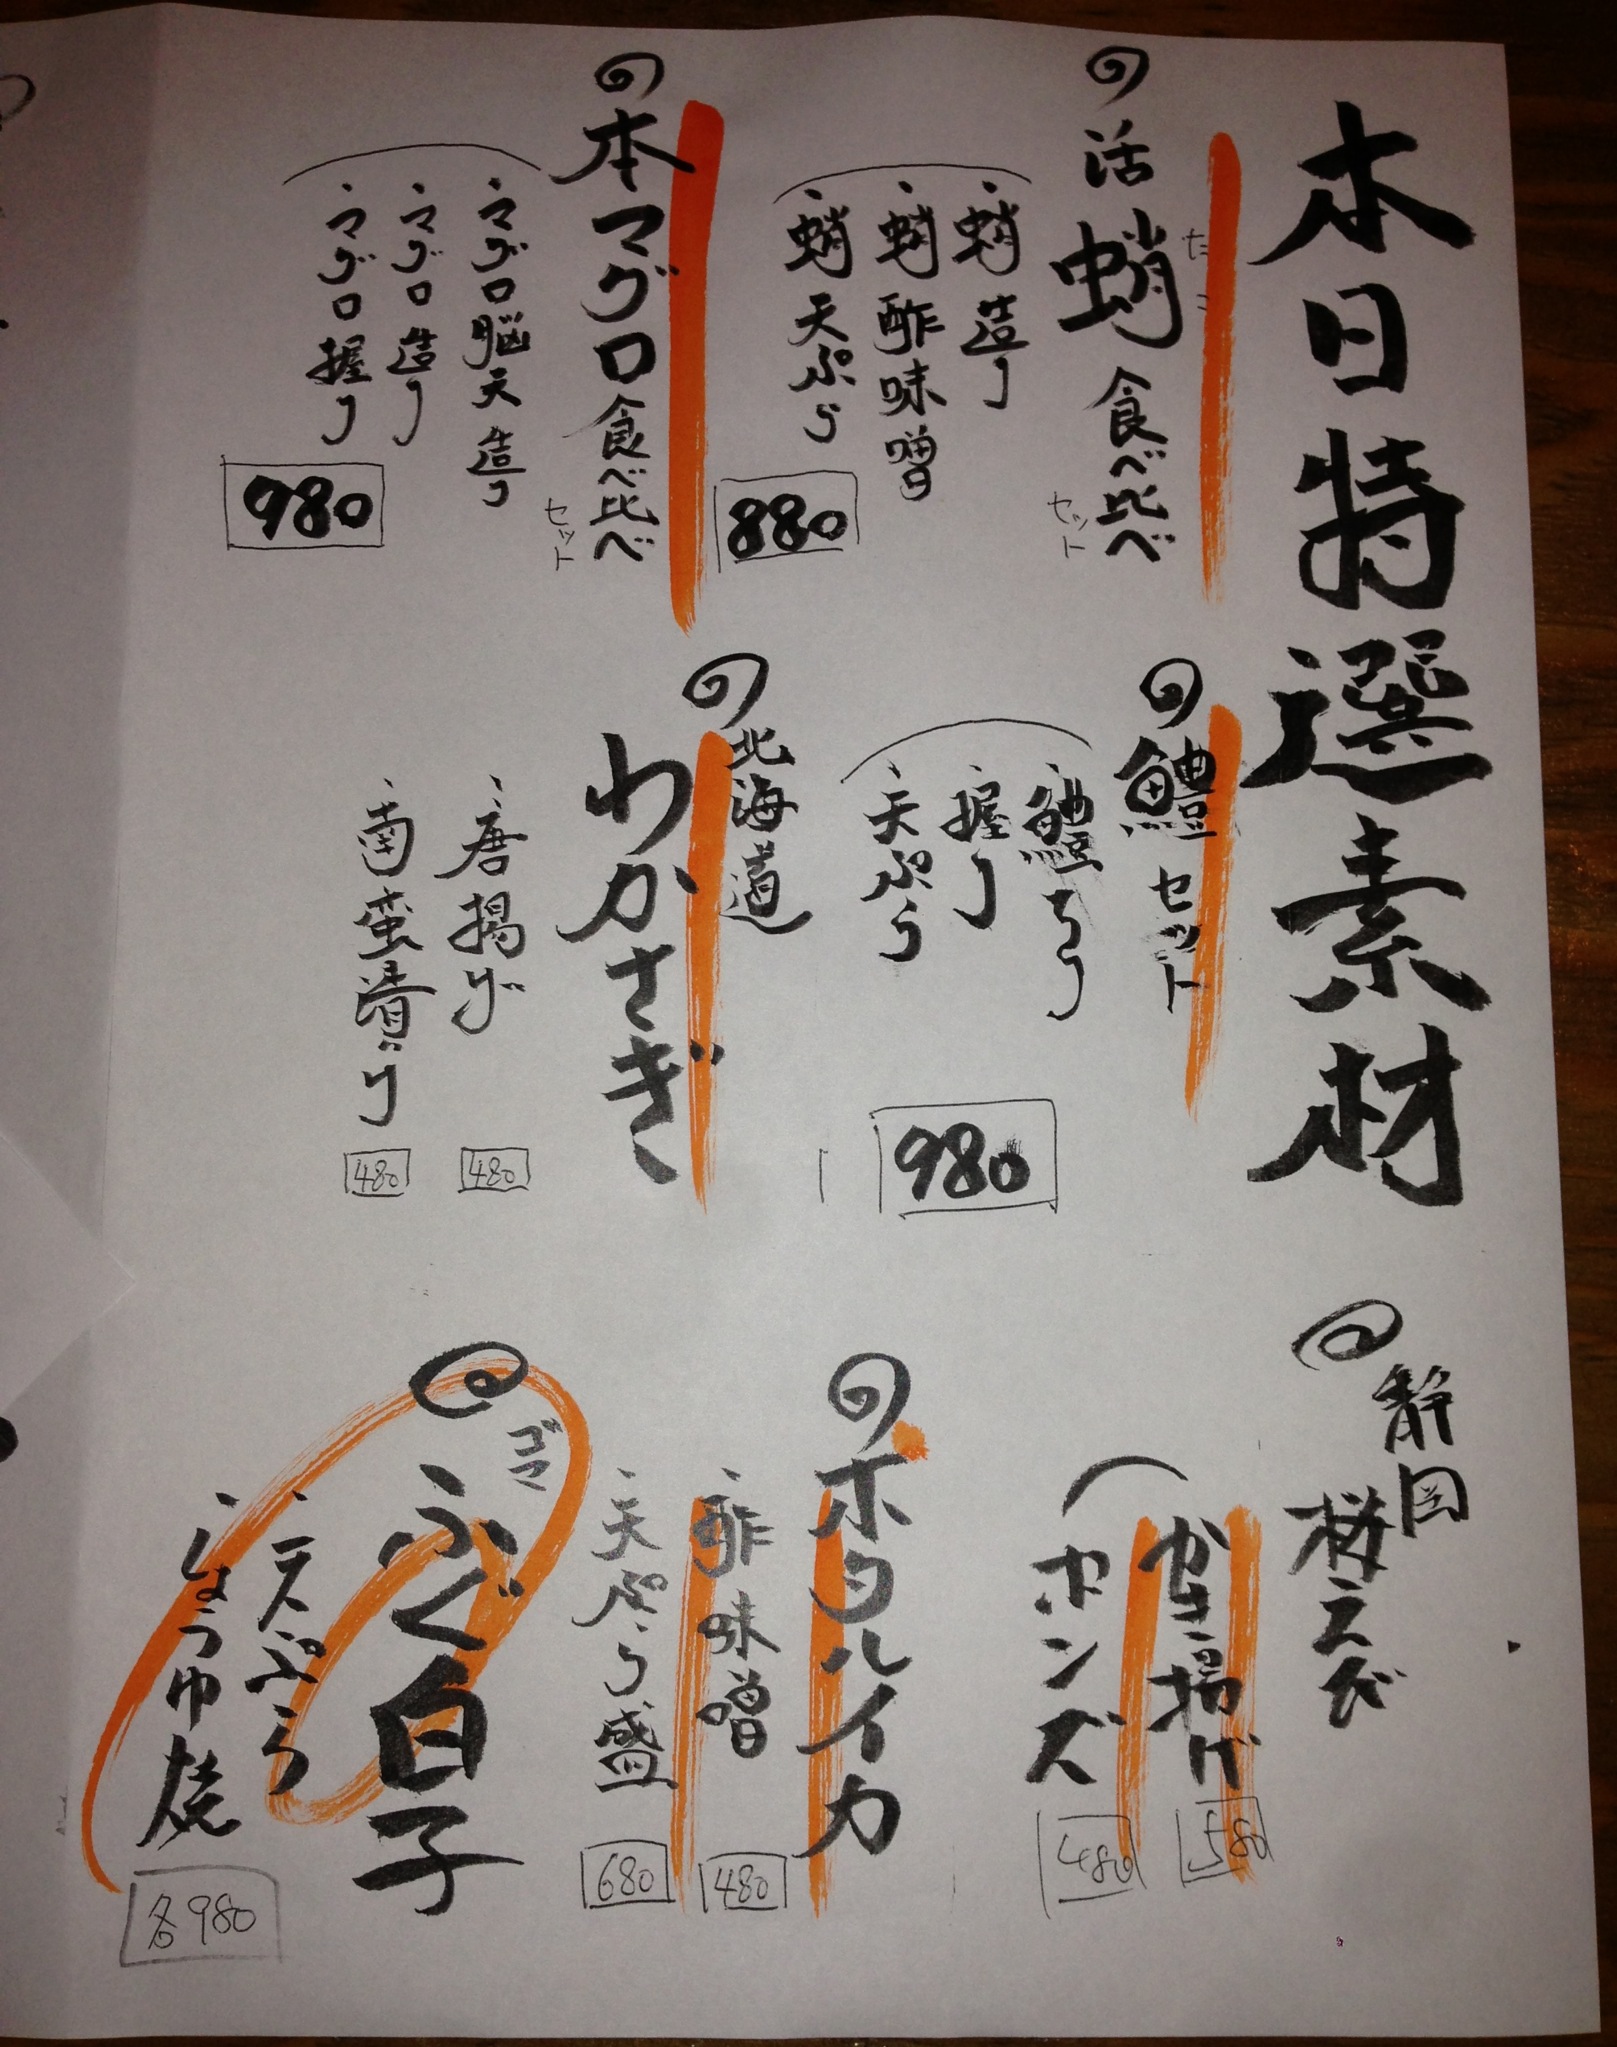 本日特選素材
活蛸食べ比べ
タコ
セット
、蛸造り
、蛸酢味噌
、蛸天ぷら
880
本マグロ食べ比べ
セット
、マグロ脳天造り
、マグロ造り
、マグロ握り
980
鱧セット
、鱧ちり
、握り
、天ぷら
980
北海道
わかさぎ
、唐揚げ
480
、南蛮漬け
480
静岡
桜えび
かき揚げ
580
ポンズ
480
ホタルイカ
、酢味噌
480
、天ぷら盛
680
ゴマ
ふぐ白子
、天ぷら
、しょう巾焼
各980